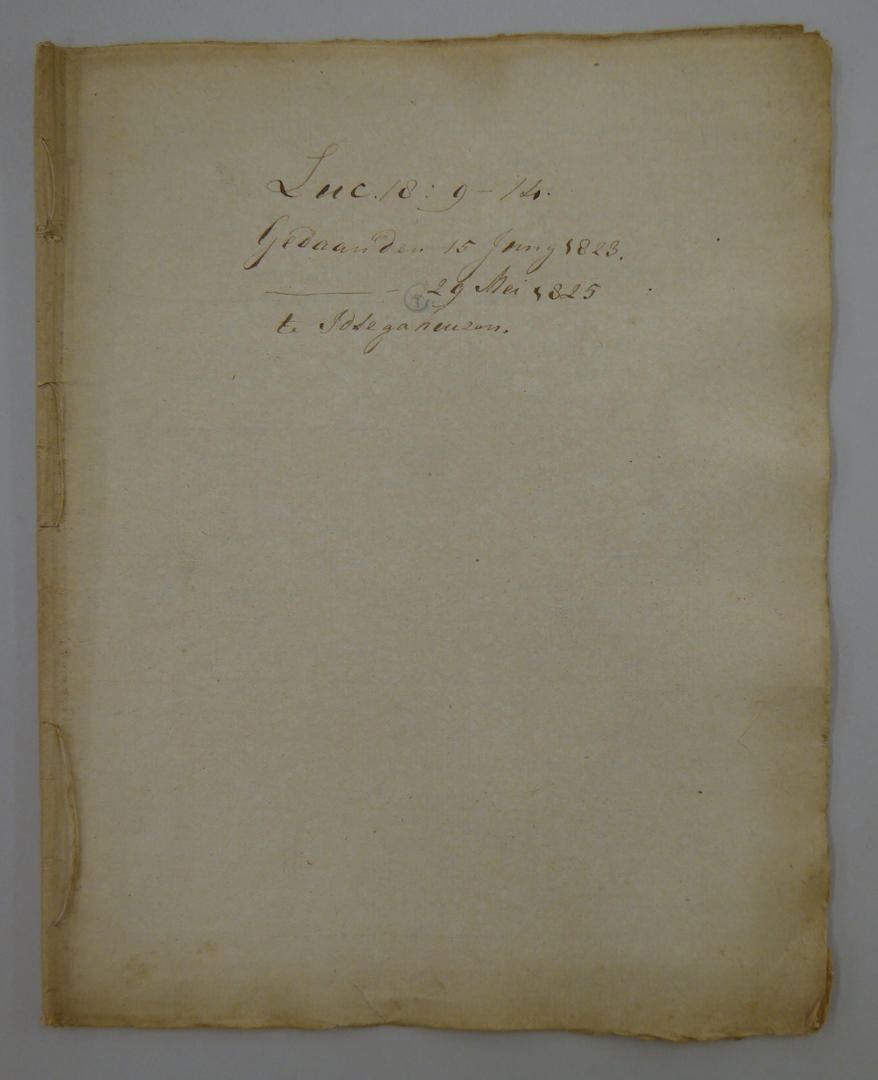 Luc. 18: 9-14.
Gedaan den 15 Juny 1823.
——— - 29 Mei 1825
te Idsegahuizen.